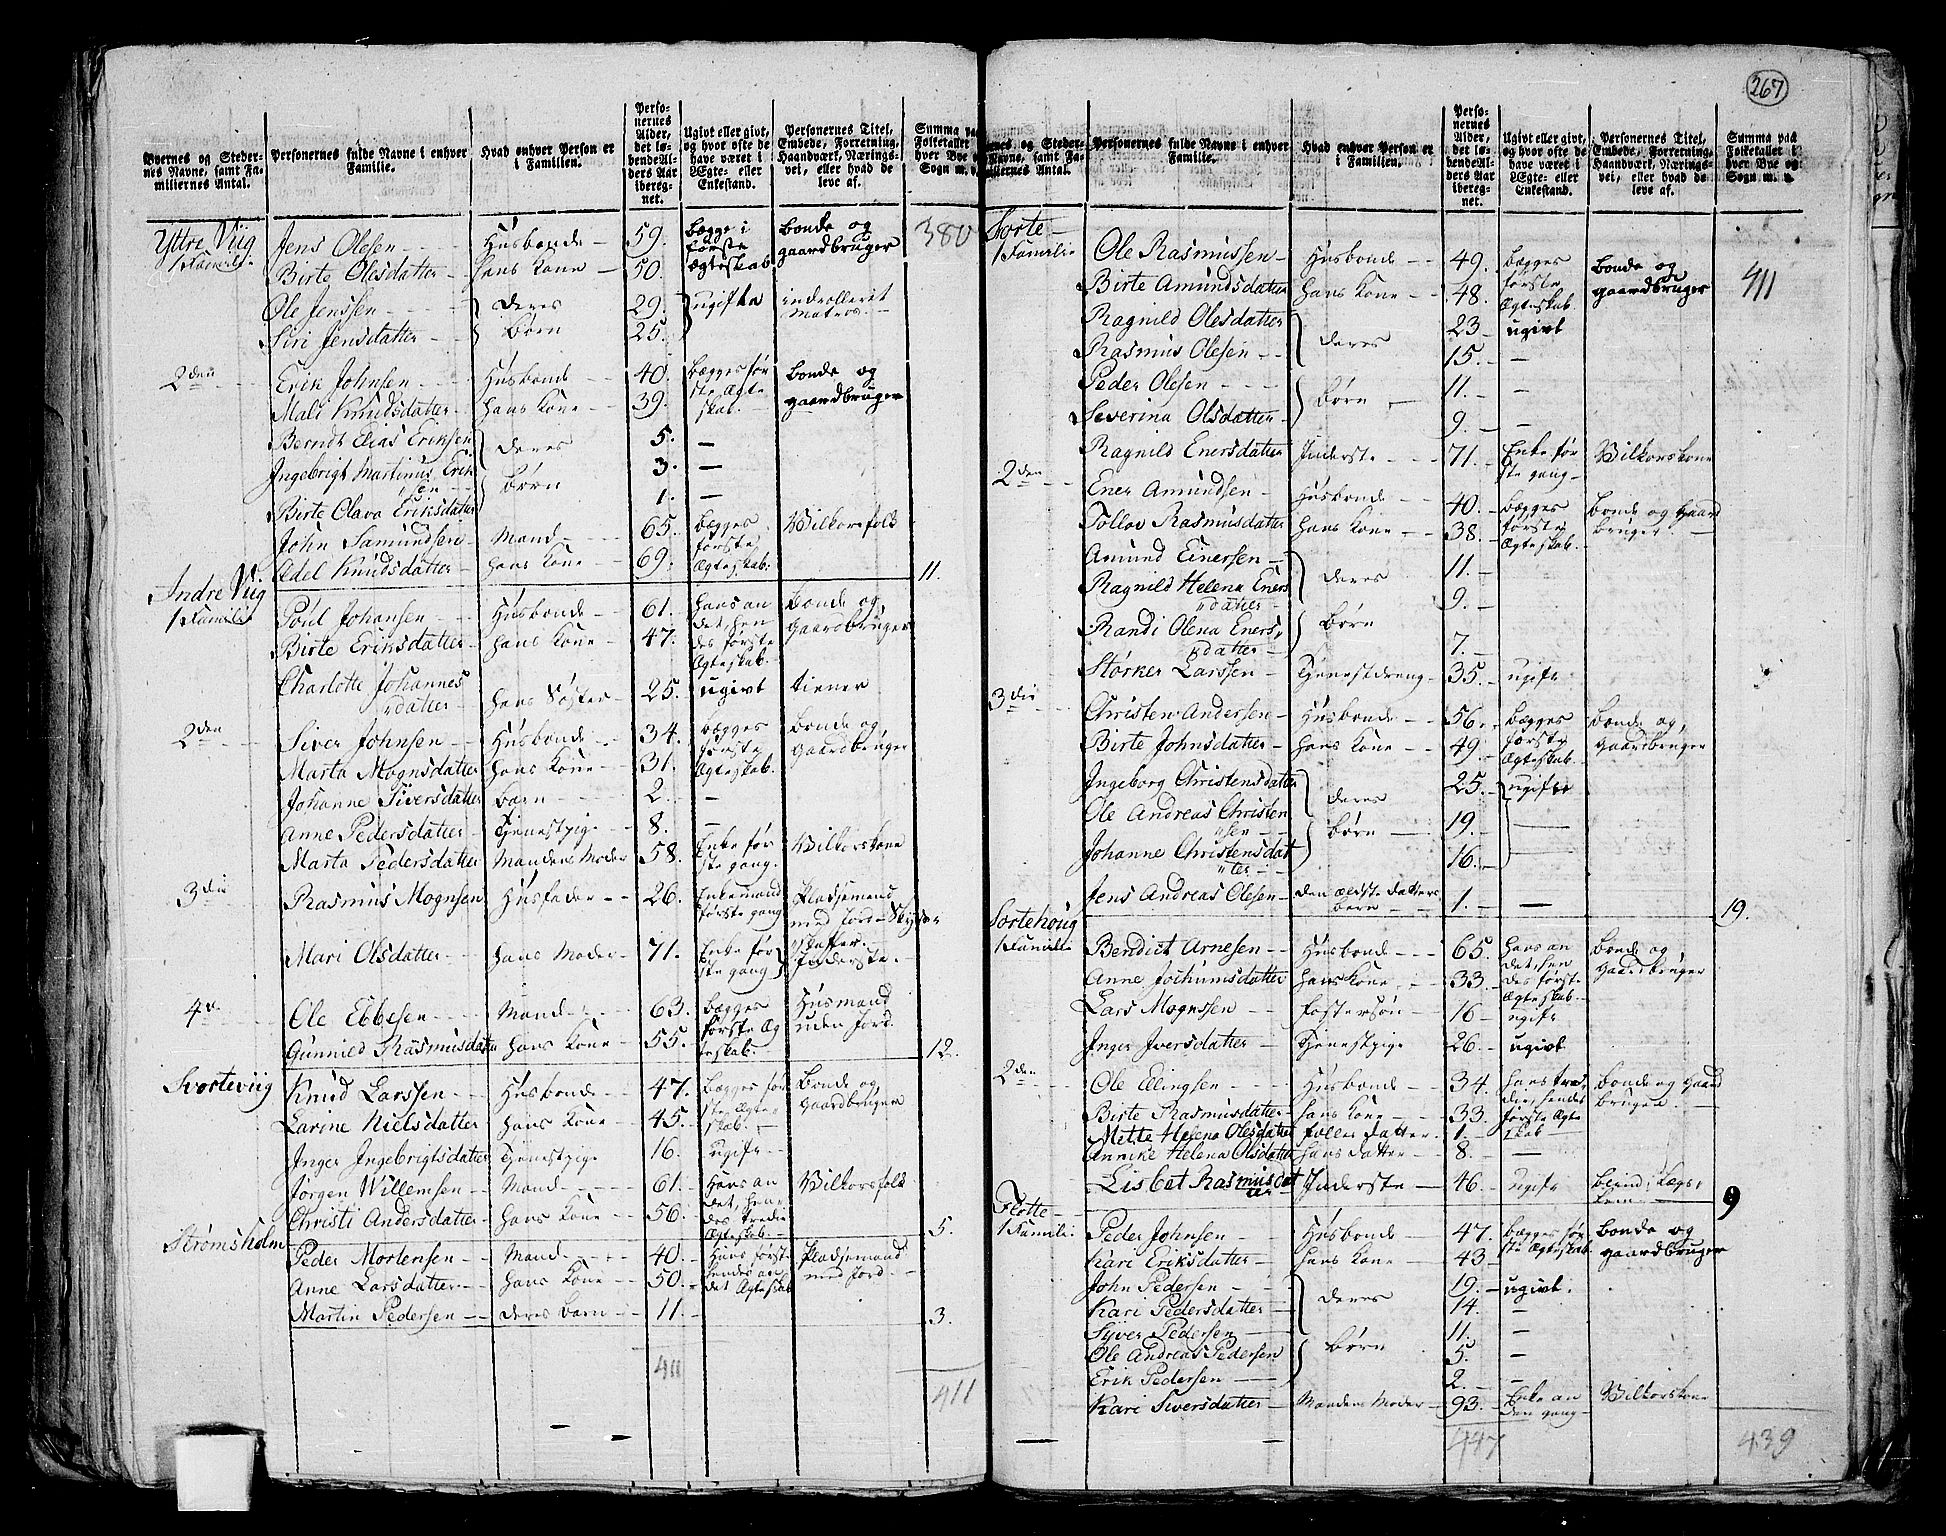 267
Byernes og Steder-
nes Navne, samt Fa-
miliernes Antal.
Personernes fulde Navne i enhver
Familie.
Hvad enhver Person er
i Familien.
Perso-
nernes
Alder,
det lø-
bende Aar
iberegnet.
Ugivt eller givt,
og hvor ofte de
have været i
Ægte- eller
Enkestand.
Personernes Titel,
Embede, Forretning,
Haandværk, Nærings-
vei, eller hvad de
leve af.
Summa paa
Folketallet i
hver Bye og
Sogn m. v.
Yttre Viig 380
1 Familie
Jens Olesen Husbonde 59. begge i første Ægteskab bonde og gaardbruger
Birte Olesdatter hans Kone 50.
Ole Jenssen deres 29. ugifta indrolleret Matros
Siri Jensdatter børn 25.
2den Erik Johnsen Husbonde 40. begges før ste Ægte skab bonde og gaardbruger
Mali Knudsdatter hans Kone 39.
Berndt Elias Eriksen deres 5. —
Ingebrigt Martinus Erik sen børn 3. —
Birte Olava Eriksdatter 1. —
John Samundsen Mand 65. begges første Ægteskab. Vilkorsfolk
Adel Knudsdatter hans Kone 69. 11.
Indre Viig
1 Familie Poul Johansen Husbonde 61. hans an det, hen des første Ægteskab. bonde og gaardbruger
Birte Eriksdatter hans Kone 47.
Charlotte Johannes datter hans Søster 25. ugivt tiener
2den Siver Johnsen Husbonde 34. begges første Ægteskab. bonde og gaardbruger
Marta Mognsdatter hans Kone 31.
Johanne Siversdatter barn 2. —
Anne Pedersdatter Tjenestpige 8. —
Marta Pedersdatter Mandens Moder 58. Enke før ste gang. Vilkorskone
3die Rasmus Mognsen Husfader 26. Enkemand første gang Pladsemand med Jord Skyds skaffer.
Mari Olsdatter hans Moder 71. Enke før ste gang Inderste.
4de Ole Ebbesen Mand 63. begges første Æg teskab. Husmand uden Jord.
Gunnild Rasmusdatter hans Kone 55. 12.
Svorteviig Knud Larssen Husbonde 47. begges før ste Ægte skab. bonde og gaardbruger
Larine Nielsdatter hans Kone 45.
Inger Ingebrigtsdatter Tjenestpige 16. ugift
Jørgen Willemsen Mand 61. hans an det, hen des tredie Ægteskab Vilkorsfolk
Christi Andersdatter hans Kone 56. 5.
Strømsholm
Peder Mortensen Mand 40. hans først hendes an det Ægteskab Pladsemand med Jord.
Anne Larsdatter hans Kone 50.
Martin Pedersen deres barn 11. 3.
411
411
Byernes og Steder-
nes Navne, samt Fa-
miliernes Antal.
Personernes fulde Navne i enhver
Familie.
Hvad enhver Person er
i Familien.
Perso-
nernes
Alder,
det lø-
bende Aar
iberegnet.
Ugivt eller givt,
og hvor ofte de
have været i
Ægte- eller
Enkestand.
Personernes Titel,
Embede, Forretning,
Haandværk, Nærings-
vei, eller hvad de
leve af.
Summa paa
Folketallet i
hver Bye og
Sogn m. v.
Sorte
1 Familie Ole Rasmussen Husbonde 49. begges første Ægteskab bonde og gaardbruger 411
Birte Amundsdatter hans Kone 48.
Ragnild Olesdatter 23 ugivt
Rasmus Olesen deres 15. —
Peder Olesen 11. —
Severina Olsdatter børn 9. —
Ragnild Enersdatter Inderste 71. Enke før ste gang Vilkorskone
2den Ener Amundsen Husbonde 40. begges første Ægteskab. bonde og gaard bruger.
Tollov Rasmusdatter hans Kone 38.
Amund Einersen deres 11.
Ragnild Helena Eners datter 9.
Randi Olena Eners datter børn 7.
Størker Larssen Tjenestdreng 35. ugift
3die Christen Andersen Husbonde 56. begges første Ægteskab. bonde og gaardbruger
Birte Johnsdatter hans Kone 49.
Ingeborg Christensdatter deres 25. ugift
Ole Andreas Christen sen børn 19. —
Johanne Christensdat ter 16. —
Jens Andreas Olesen den ældste datters barn 1. — 19.
Sortehoug
1 Familie Bendict Arnesen Husbonde 65. hans an det, hen des først Ægteskab bonde og gaardbruger
Anne Jochumsdatter hans Kone 33.
Lars Mognssen fostersøn 16 ugift
Inger Iversdatter Tjenestpige 26. ugivt
2den Ole Ellingsen Husbonde 34 hans tre die, hendes første Ægte skab bonde og gaard bruger.
Birte Rasmusdatter hans Kone 33.
Mette Helena Olesdatter fælles datter 1. —
Annike Helena Olsdatter hans datter 8. —
Lisbet Rasmusdat ter Inderste 46. ugift 9
Flotte
1 Familie Peder Johnsen Husbonde 47. begges før ste Ægteskab bonde og gaardbruger
Kari Eriksdatter hans Kone 43
John Pedersen deres 19. ugivt.
Kari Pedersdatter 14. —
Syver Pedersen 11. —
Ole Andreas Pedersen børn 5. —
Erik Pedersen 2. —
Kari Siversdatter Mandens Moder 93. Enke an den gang Vilkorskone
447
439